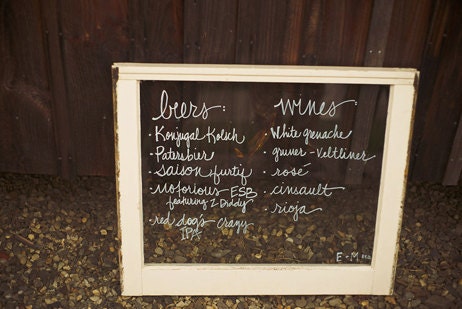 beers:
· Konjugal Kolsch
· Patersbier
· saison furtif
· Notorious ESB
featuring Z Diddy
· red dog's crazy
IPA
wines:
· White grenache
· gruner - Veltliner
· rosé
· cinsault
· rioja
E - M